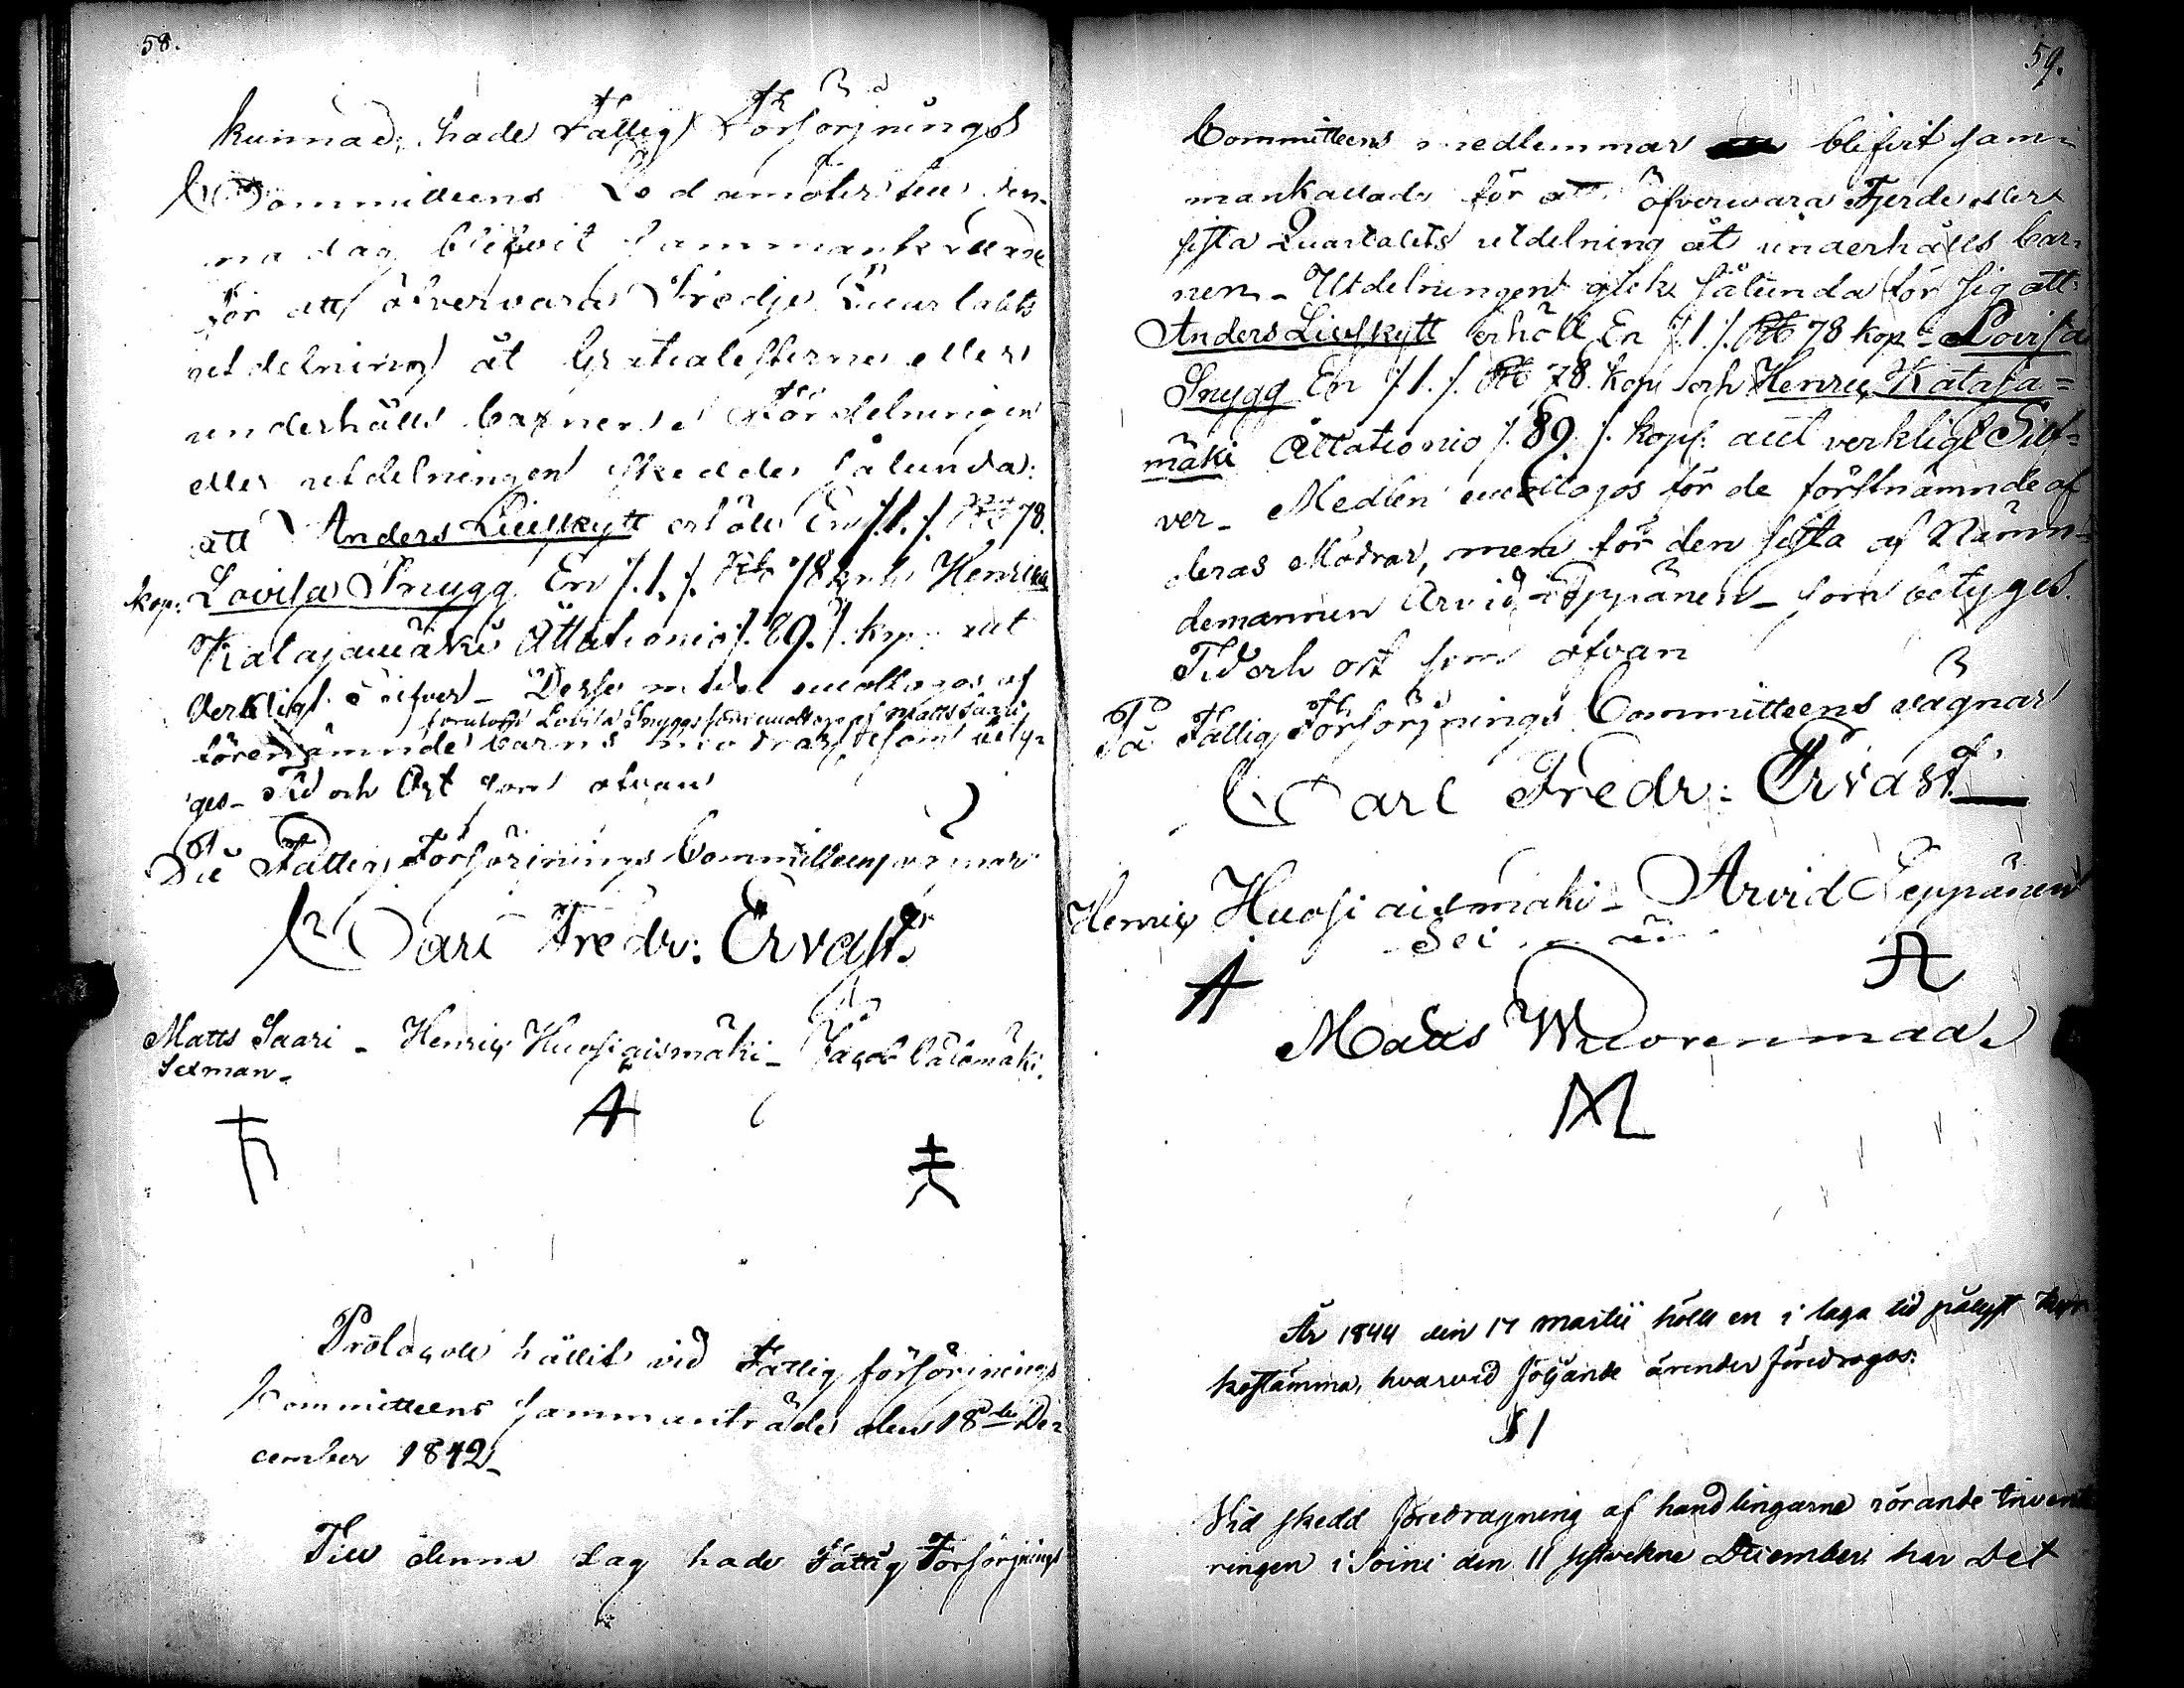 58.
kunnad, hade Fattig Försörjnings
Committeens Ledamöter till den-
na dag blifvit sammankallade
för att öfvervara Tredje Quartalets
utdelning åt Gratialisterne eller
underhålls barnen. Fördelningen
eller utdelningen skedde sålunda:
att Anders Liufskytt erhöll En /.1./. Rub 78.
kop: Lovisa Snygg En /.1./. Rub 78 och Henric
Katajamäki Åttationio /.89./. kop. allt
verkligt Silfver - Desse medel emottogos af
förutom Lovisa Snyggs som emottogs af Matts Saari
förenämnde barns mödrar, som bety-
ges - Tid och Ort som ofvan
På Fattig Försörjnings Committeens vägnar
Carl Fredr: Ervast
Matts Saari - Henric Huosiaismäki - Jacob
Sexman -
Protocoll hållit vid Fattig försörjnings
Committeens sammanträde den 18de De-
cember 1842 -
Till denna dag hade Fattig Försörjnings
59.
Committeens medlemmar blifvit sam-
mankallade för att öfvervara Fjerde eller
sista Quartalets utdelning åt underhålls bar-
nen - Utdelningen gick sålunda för sig att:
Anders Liufskytt erhöll En /.1./. Rub 78 kop - Lovisa
Snygg En /.1./. Rub 78. kop. och Henric Kataja=
mäki Åttationio /.89./. kop: allt verkligt Silf=
ver - Medlen emottogos för de förstnämnde af
deras Mödrar, men för den sista af Nämn-
demannen Arvid Seppänen - som betyges.
Tid och ort som ofvan
På Fattig Försörjnings Committeens vägnar
Carl Fredr: Ervast
Henric Huosiaismäki - Arvid Seppänen
A
Matts Wuorenmaa
M
År 1844 den 17 Martii hölls en i laga tid pålyst
kostämma, hvarvid följande ärender föredrogos:
§ 1
Vid skedd föredragning af handlingarne rörande Inventer-
ringen i Soini den 11 sistvekne December har det